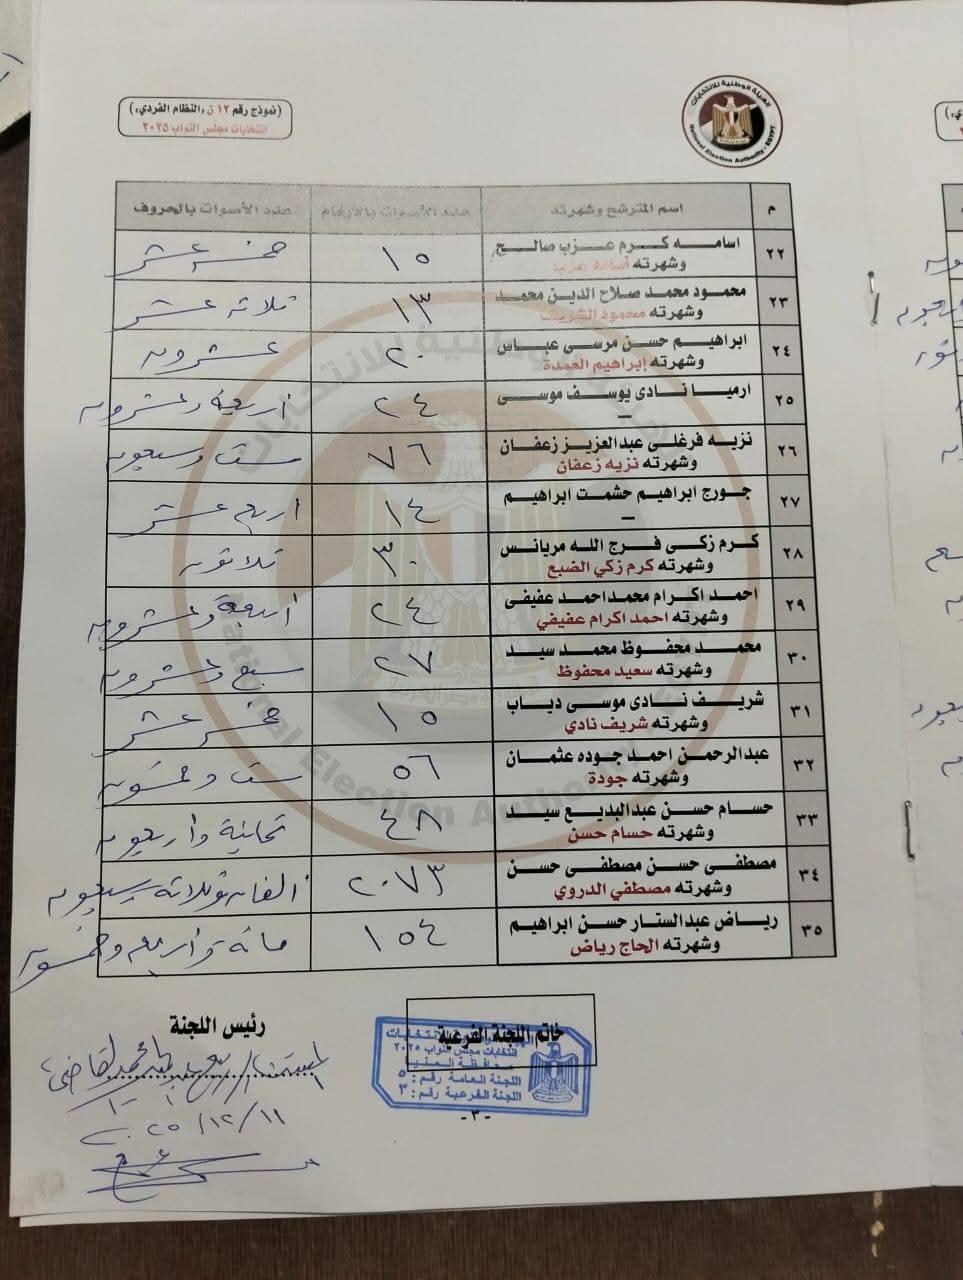 (نموذج رقم ١٢ ن، النظام الفردي)
انتخابات مجلس النواب ٢٠٢٥
الهيئة الوطنية للانتخابات
National Election Authority - EGYPT
م اسم المترشح وشهرته عدد الأصوات بالأرقام عدد الأصوات بالحروف
٢٢ اسامه كرم عزب صالح ١٥ خمسة عشر
وشهرته أسامة عزب
٢٣ محمود محمد صلاح الدين محمد ١٣ ثلاثة عشر
وشهرته محمود الشريف
٢٤ ابراهيم حسن مرسى عباس ٢٠ عشرون
وشهرته إبراهيم العمدة
٢٥ ارميا نادى يوسف موسى ٢٤ أربعة وعشرون
–
٢٦ نزيه فرغلى عبدالعزيز زعفان ٧٦ ست وسبعون
وشهرته نزيه زعفان
٢٧ جورج ابراهيم حشمت ابراهيم ١٤ اربع عشر
–
٢٨ كرم زكى فرج الله مريانس ٣٠ ثلاثون
وشهرته كرم زكي الضبع
٢٩ احمد اكرام محمد احمد عفيفى ٢٤ اربعة وعشرون
وشهرته احمد اكرام عفيفي
٣٠ محمد محفوظ محمد سيد ٢٧ سبع وعشرون
وشهرته سعيد محفوظ
٣١ شريف نادى موسى دياب ١٥ خمس عشر
وشهرته شريف نادي
٣٢ عبدالرحمن احمد جوده عثمان ٥٦ ست وخمسون
وشهرته جودة
٣٣ حسام حسن عبدالبديع سيد ٤٨ ثمانية وأربعون
وشهرته حسام حسن
٣٤ مصطفى حسن مصطفى حسن ٢٠٧٣ الفان وثلاثة وسبعون
وشهرته مصطفي الدروي
٣٥ رياض عبدالستار حسن ابراهيم ١٥٤ مائة وأربع وخمسون
وشهرته الحاج رياض
National Election Authority
خاتم اللجنة الفرعية
انتخابات مجلس النواب ٢٠٢٥
محافظة المنيا
اللجنة العامة رقم: ٥
اللجنة الفرعية رقم: ٣
رئيس اللجنة
٢٠٢٥/١٢/١١
- ٣ -